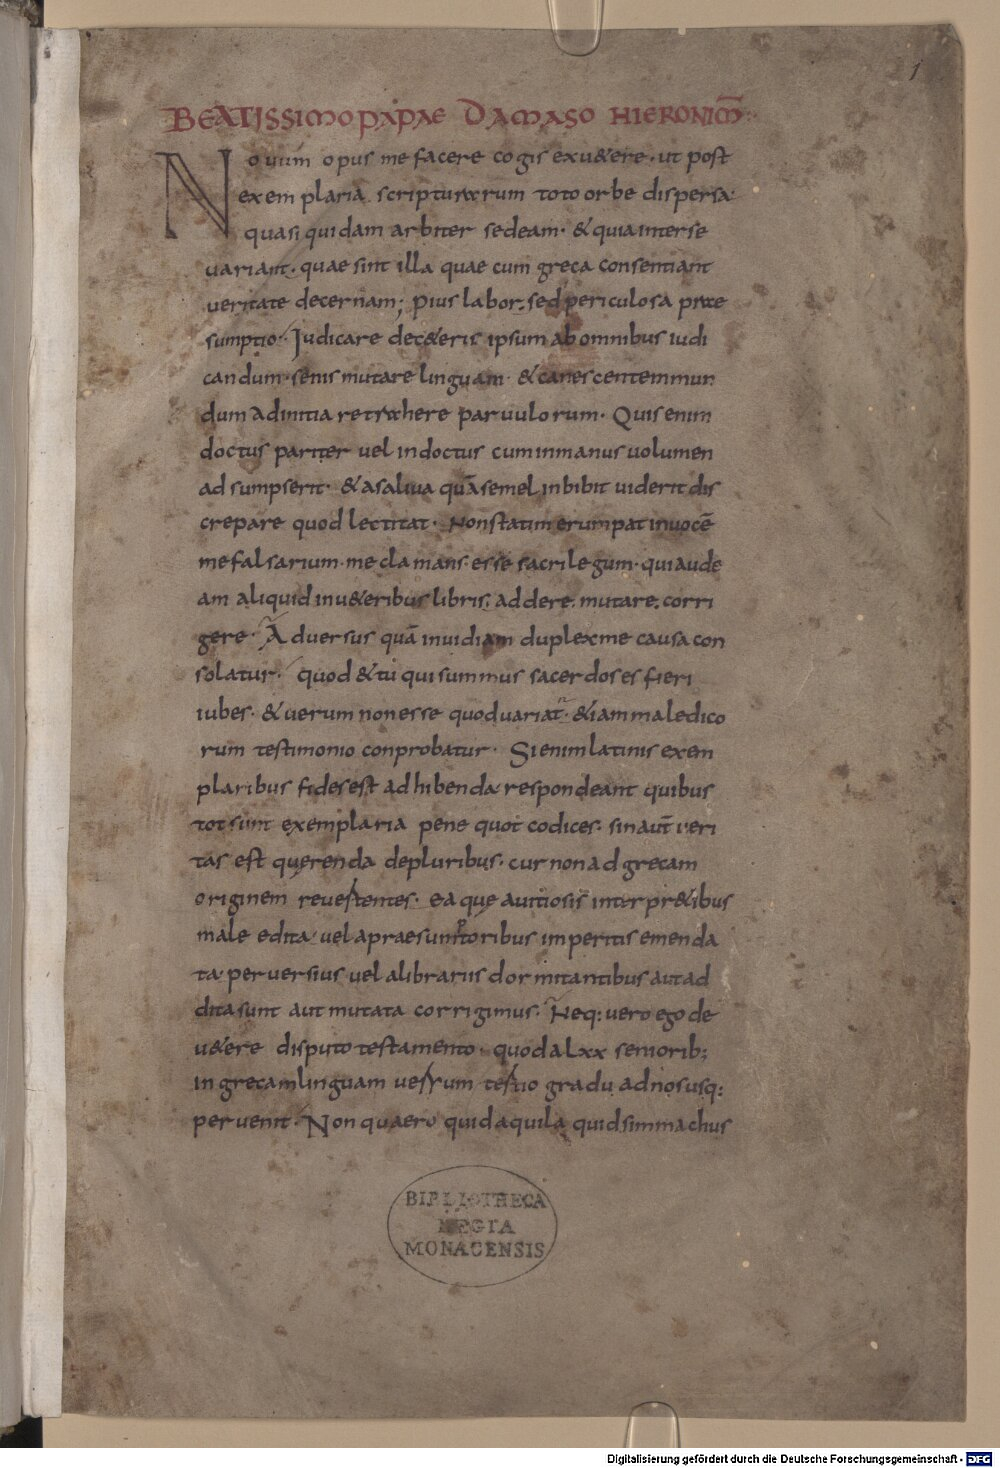 1
BEATISSIMO PAPAE DAMASO HIERONIM̅:
Nouum opus me facere cogis exu&ere · ut post
exemplaria scripturarum toto orbe dispersa ·
quasi quidam arbiter sedeam · & quia interse
uariant · quae sint illa quae cum greca consentiant
ueritate decernam; pius labor · sed periculosa prae
sumptio · Iudicare dec&eris ipsum ab omnibus iudi
candum · senis mutare linguam · & canescentem mun
dum ad initia retrahere paruulorum · Quis enim
doctus pariter uel indoctus cum in manus uolumen
adsumpserit · & a saliua quā semel inbibit uiderit dis
crepare quod lectitat · Non statim erumpat in uocē
me falsarium · me clamans esse sacrilegum · qui aude
am aliquid in u&eribus libris · addere · mutare · corri
gere · Aduersus quā inuidiam duplex me causa con
solatur · quod & tu qui summus sacerdos es fieri
iubes · & uerum non esse quod uariat̅ · & iam maledico
rum testimonio conprobatur · Si enim latinis exem
plaribus fides est adhibenda respondeant quibus
tot sunt exemplaria pene quot codices · sin aut̅ ueri
tas est querenda de pluribus · cur non ad grecam
originem reuertentes · ea que a uitiosis interpr&ibus
male edita · uel a praesumptoribus imperitis emenda
ta peruersius uel a librariis dormitantibus aut ad
dita sunt aut mutata corrigimus · Neq: uero ego de
u&ere disputo testamento · quod a lxx seniorib;
in grecam linguam uersum tertio gradu ad nos usq:
peruenit · Non quaero quid aquila quid simmachus
BIBLIOTHECA
REGIA
MONACENSIS
Digitalisierung gefördert durch die Deutsche Forschungsgemeinschaft - DFG